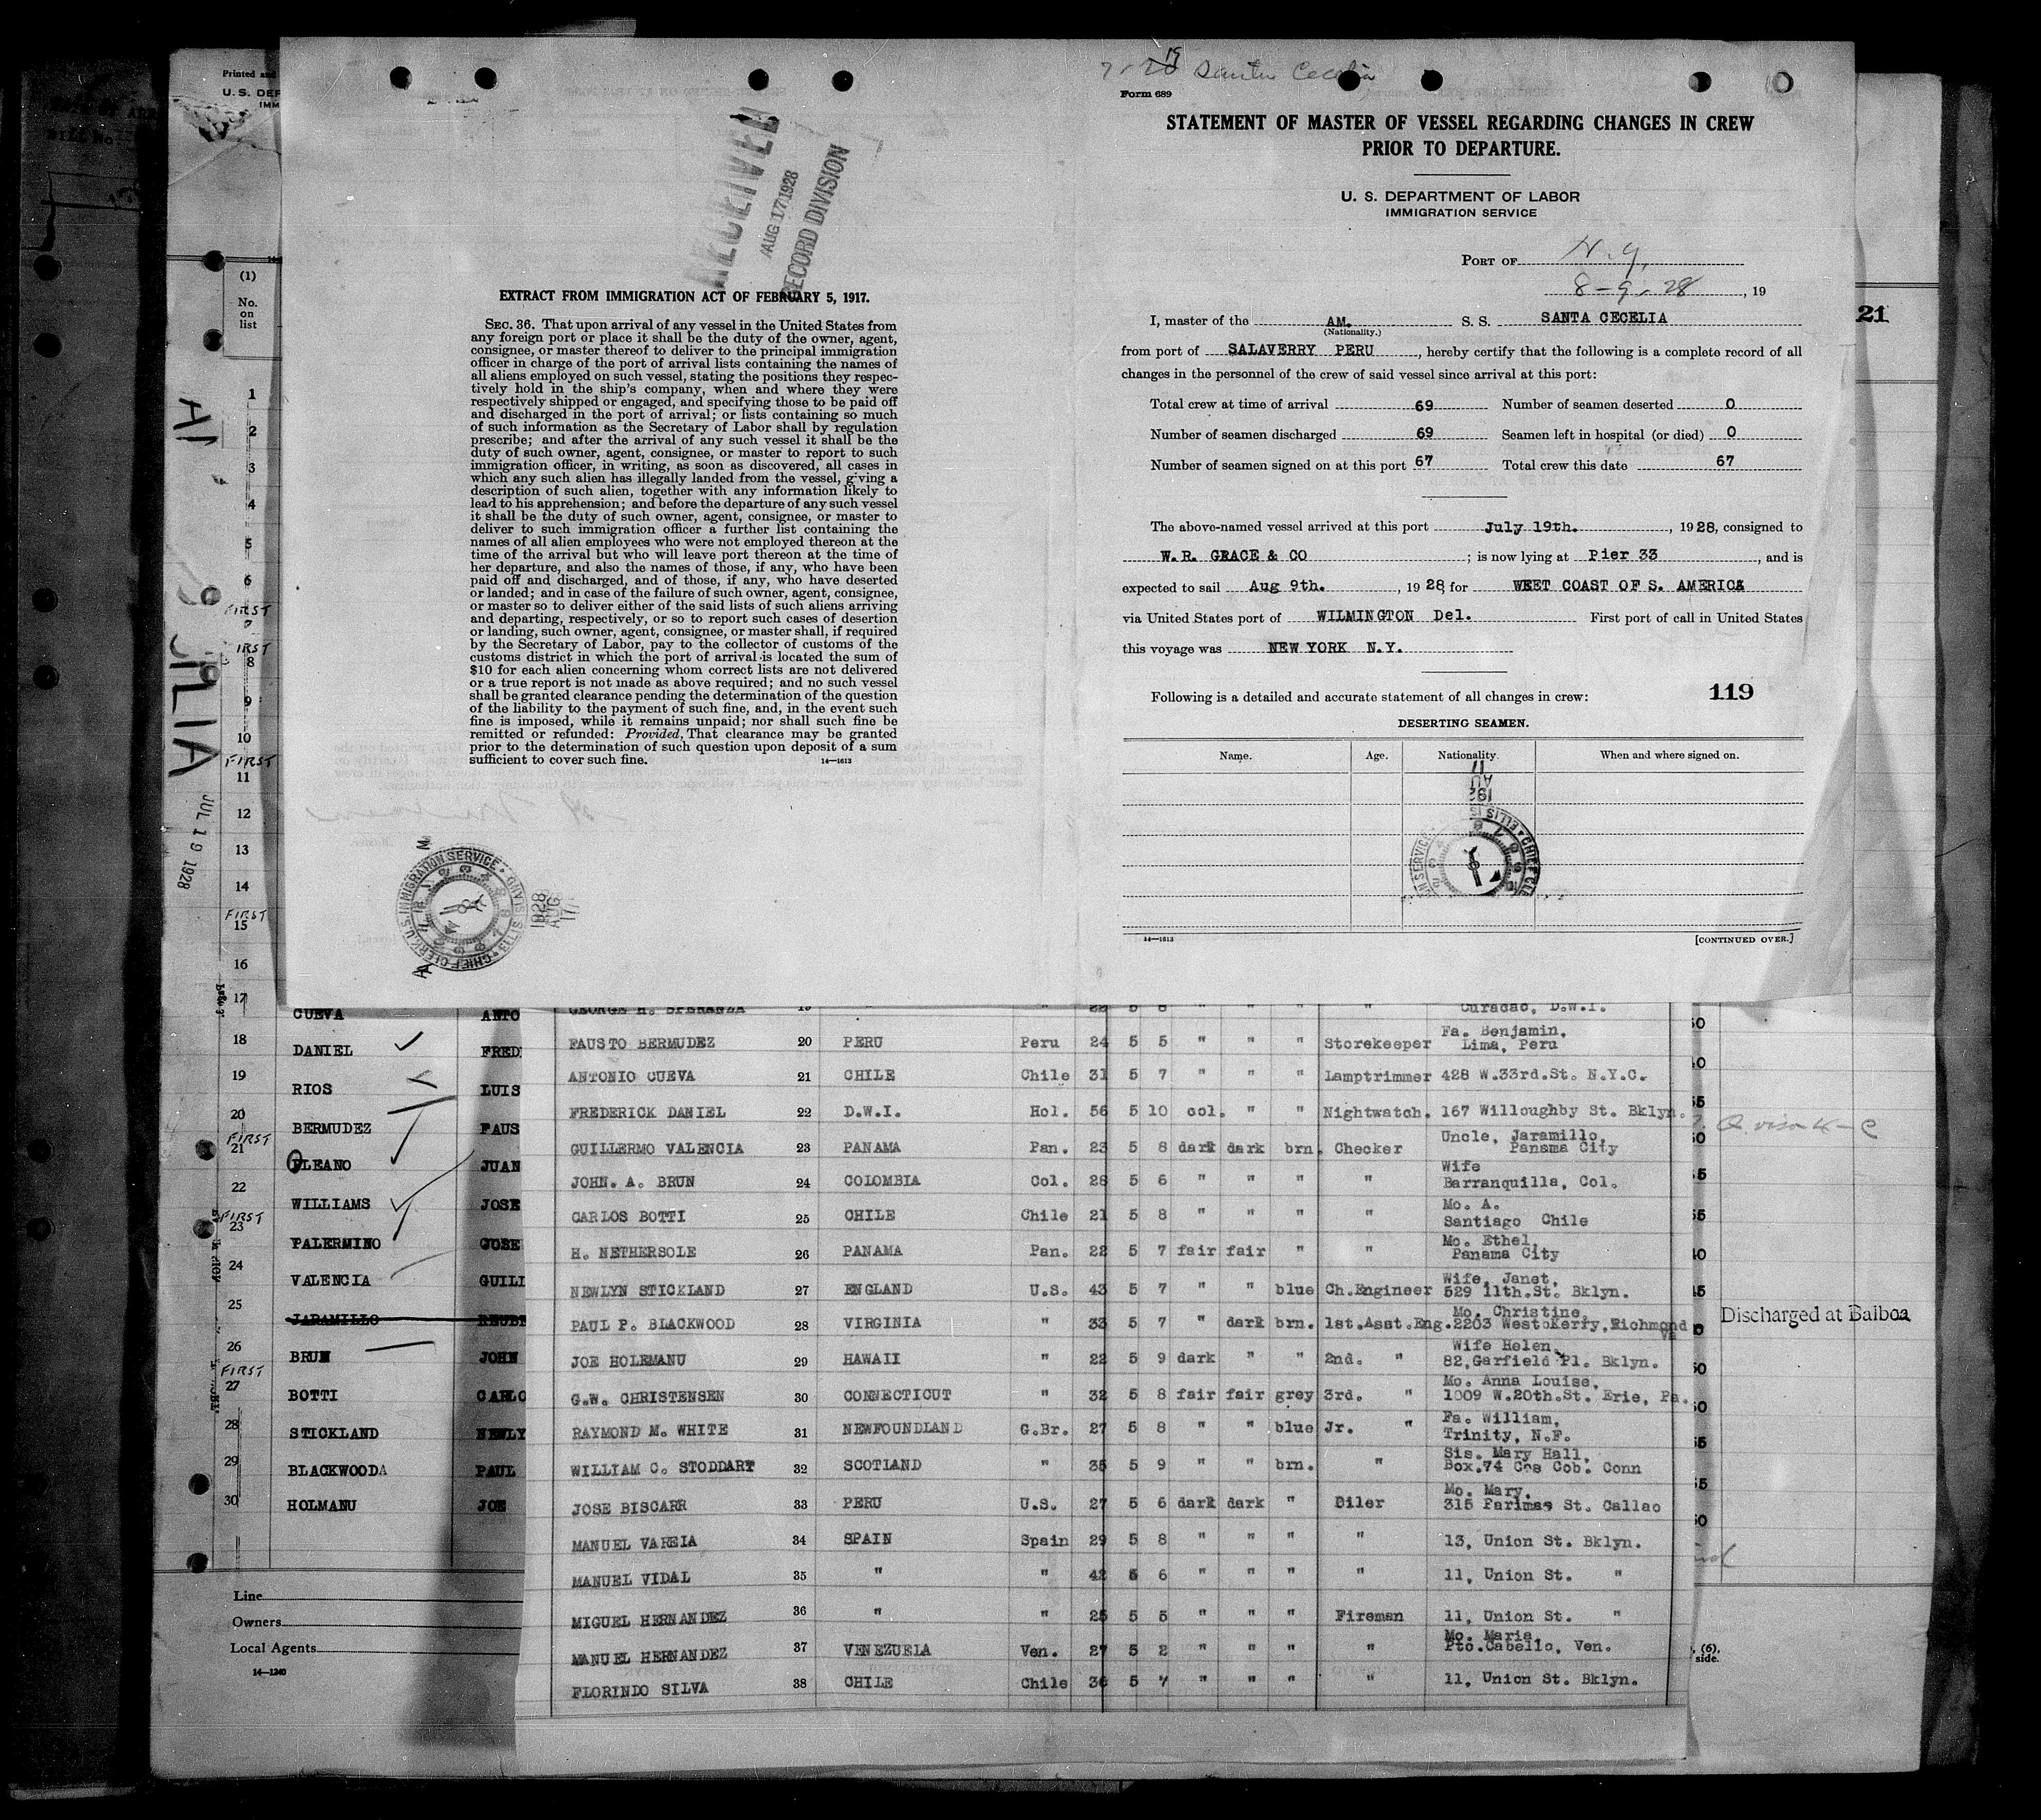 Printed
U. S. DEP
IMM
(1)
No.
on
list
1
2
3
4
5
6
FIRST
7
8
9
10
FIRST
11
12
13
14
FIRST
15
16
17
JUL 19 1928
7-19 Santa Cecelia
Form 689
STATEMENT OF MASTER OF VESSEL REGARDING CHANGES IN CREW
PRIOR TO DEPARTURE.
U. S. DEPARTMENT OF LABOR
IMMIGRATION SERVICE
PORT OF N.Y.
8-9-28, 19
I, master of the AM. S. S. SANTA CECELIA
(Nationality.)
from port of SALAVERRY PERU, hereby certify that the following is a complete record of all
changes in the personnel of the crew of said vessel since arrival at this port:
Total crew at time of arrival 69 Number of seamen deserted 0
Number of seamen discharged 69 Seamen left in hospital (or died) 0
Number of seamen signed on at this port 67 Total crew this date 67
The above-named vessel arrived at this port July 19th., 1928, consigned to
W.R. GRACE & CO; is now lying at Pier 33, and is
expected to sail Aug 9th., 1928, for WEET COAST OF S. AMERICA
via United States port of WILMINGTON Del. First port of call in United States
this voyage was NEW YORK N.Y.
Following is a detailed and accurate statement of all changes in crew: 119
DESERTING SEAMEN.
Name. Age. Nationality. When and where signed on.
14—1613 [CONTINUED OVER.]
21
RECEIVED
AUG 17 1928
RECORD DIVISION
EXTRACT FROM IMMIGRATION ACT OF FEBRUARY 5, 1917.
SEC. 36. That upon arrival of any vessel in the United States from
any foreign port or place it shall be the duty of the owner, agent,
consignee, or master thereof to deliver to the principal immigration
officer in charge of the port of arrival lists containing the names of
all aliens employed on such vessel, stating the positions they respec-
tively hold in the ship's company, when and where they were
respectively shipped or engaged, and specifying those to be paid off
and discharged in the port of arrival; or lists containing so much
of such information as the Secretary of Labor shall by regulation
prescribe; and after the arrival of any such vessel it shall be the
duty of such owner, agent, consignee, or master to report to such
immigration officer, in writing, as soon as discovered, all cases in
which any such alien has illegally landed from the vessel, giving a
description of such alien, together with any information likely to
lead to his apprehension; and before the departure of any such vessel
it shall be the duty of such owner, agent, consignee, or master to
deliver to such immigration officer a further list containing the
names of all alien employees who were not employed thereon at the
time of the arrival but who will leave port thereon at the time of
her departure, and also the names of those, if any, who have been
paid off and discharged, and of those, if any, who have deserted
or landed; and in case of the failure of such owner, agent, consignee,
or master so to deliver either of the said lists of such aliens arriving
and departing, respectively, or so to report such cases of desertion
or landing, such owner, agent, consignee, or master shall, if required
by the Secretary of Labor, pay to the collector of customs of the
customs district in which the port of arrival is located the sum of
$10 for each alien concerning whom correct lists are not delivered
or a true report is not made as above required; and no such vessel
shall be granted clearance pending the determination of the question
of the liability to the payment of such fine, and, in the event such
fine is imposed, while it remains unpaid; nor shall such fine be
remitted or refunded: Provided, That clearance may be granted
prior to the determination of such question upon deposit of a sum
sufficient to cover such fine. 14—1613
CHIEF CLERK U.S. IMMIGRATION SERVICE ELLIS ISLAND
1928 AUG 17
CUEVA ANTO
18 DANIEL FRED
19 RIOS LUIS
20 BERMUDEZ FAUS
FIRST
21 PLEANO JUAN
22 WILLIAMS JOSE
FIRST
23 PALERMINO JOSE
24 VALENCIA GUILL
25 JARAMILLO REUBE
26 BRUN JOHN
FIRST
27 BOTTI CARLO
28 STICKLAND NEWLY
29 BLACKWOODA PAUL
30 HOLMANU JOE
Line
Owners
Local Agents
14—1240
GEORGE H. SPERANZA 19 " " 22 5 8 " " " " Curacao, D.W.I.
FAUSTO BERMUDEZ 20 PERU Peru 24 5 5 " " " Storekeeper Fa. Benjamin, Lima, Peru
ANTONIO CUEVA 21 CHILE Chile 31 5 7 " " " Lamptrimmer 428 W.33rd.St. N.Y.C.
FREDERICK DANIEL 22 D.W.I. Hol. 56 5 10 col. " " Nightwatch. 167 Willoughby St. Bklyn.
GUILLERMO VALENCIA 23 PANAMA Pan. 23 5 8 dark dark brn. Checker Uncle, Jaramillo, Panama City
JOHN. A. BRUN 24 COLOMBIA Col. 28 5 6 " " " " Wife Barranquilla, Col.
CARLOS BOTTI 25 CHILE Chile 21 5 8 " " " " Mo. A. Santiago Chile
H. NETHERSOLE 26 PANAMA Pan. 22 5 7 fair fair " " Mo. Ethel, Panama City
NEWLYN STICKLAND 27 ENGLAND U.S. 43 5 7 " " blue Ch.Engineer Wife, Janet, 529 11th.St. Bklyn.
PAUL P. BLACKWOOD 28 VIRGINIA " 33 5 7 " dark brn. 1st.Asst.Eng. Mo. Christine, 2203 West Kerry, Richmond Va
JOE HOLEMANU 29 HAWAII " 22 5 9 dark " " 2nd. " Wife Helen, 82,Garfield Pl. Bklyn.
G.W. CHRISTENSEN 30 CONNECTICUT " 32 5 8 fair fair grey 3rd. " Mo. Anna Louise, 1009 W.20th.St. Erie, Pa.
RAYMOND M. WHITE 31 NEWFOUNDLAND G.Br. 27 5 8 " " blue Jr. " Fa. William, Trinity, N.F.
WILLIAM C. STODDART 32 SCOTLAND " 35 5 9 " " brn. " Sis. Mary Hall, Box.74 Cos Cob. Conn
JOSE BISCARR 33 PERU U.S. 27 5 6 dark dark " Oiler Mo. Mary, 315 Farimas St. Callao
MANUEL VAREIA 34 SPAIN Spain 29 5 8 " " " " 13, Union St. Bklyn.
MANUEL VIDAL 35 " " 42 5 6 " " " " 11, Union St. "
MIGUEL HERNANDEZ 36 " " 25 5 5 " " " Fireman 11, Union St. "
MANUEL HERNANDEZ 37 VENEZUELA Ven. 27 5 2 " " " " Mo. Maria, Pto.Cabello, Ven.
FLORINDO SILVA 38 CHILE Chile 36 5 7 " " " " 11, Union St. Bklyn.
Discharged at Balboa
(6).
side.